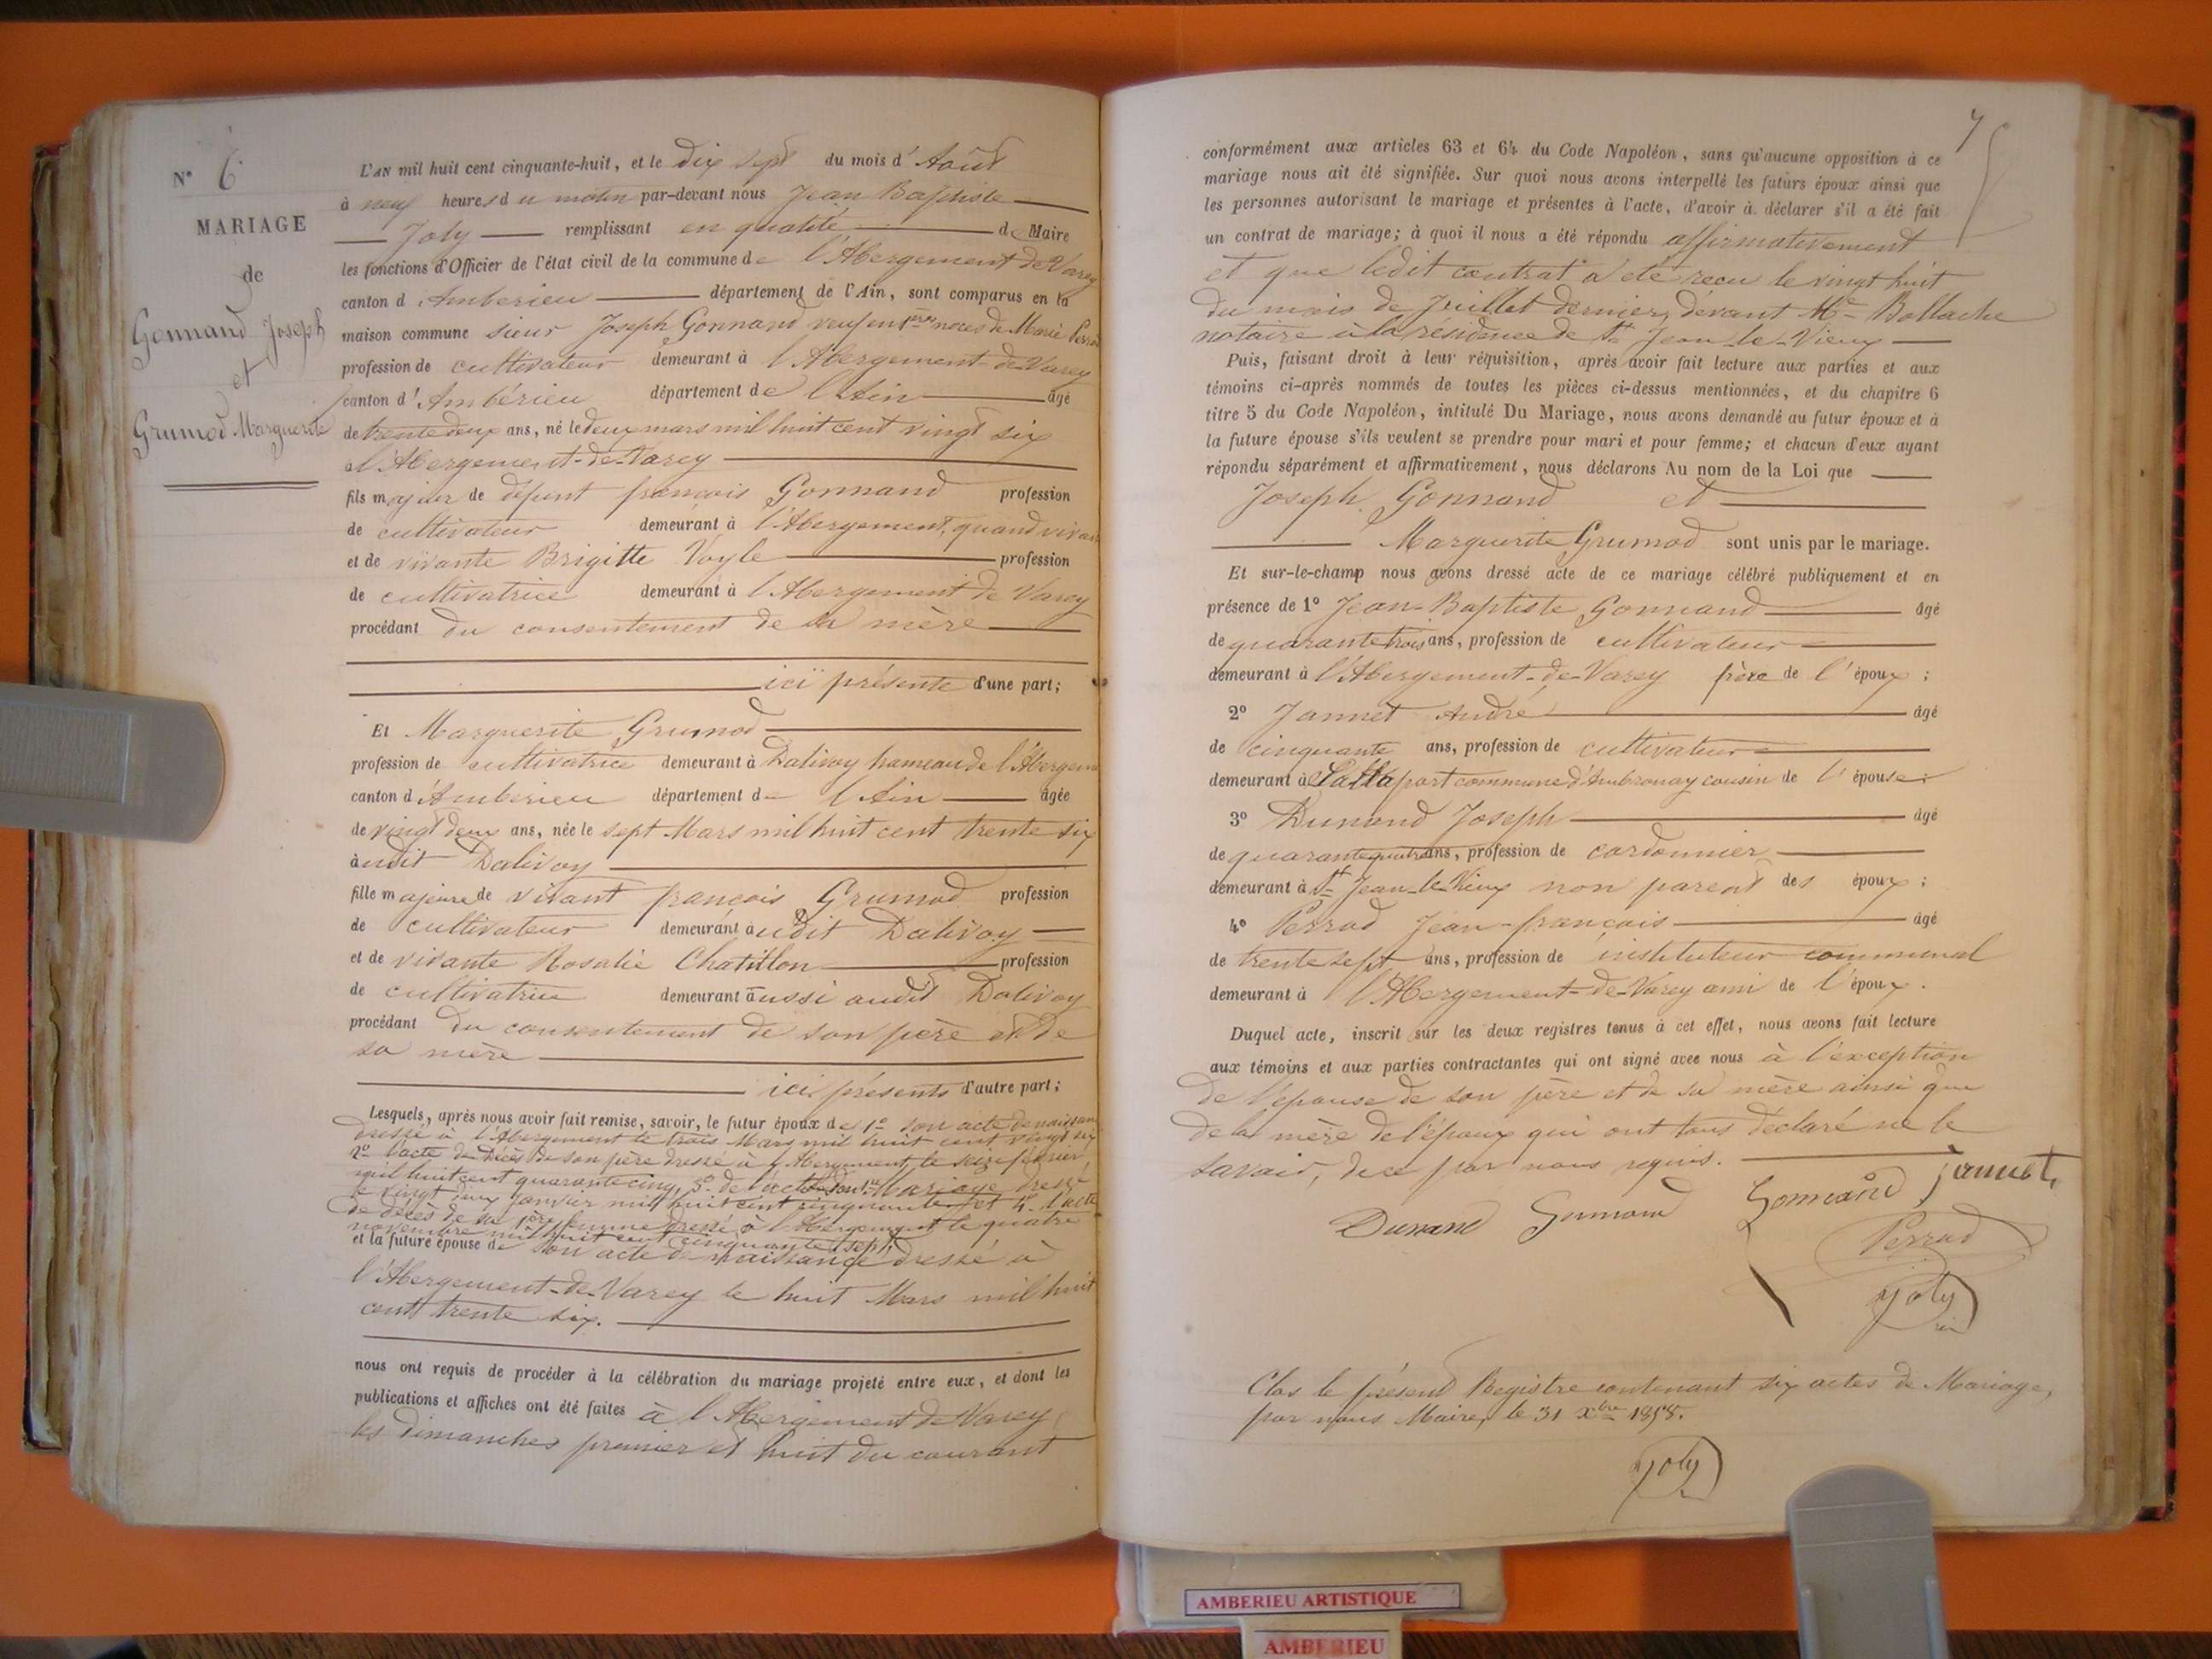 N° 6
MARIAGE
de
Gonnand Joseph
et
Grumod Marguerite
L'AN mil huit cent cinquante-huit, et le dix sept du mois d'Août
à neuf heures du matin par-devant nous Jean Baptiste
Joly remplissant en qualité de Maire
les fonctions d'Officier de l'état civil de la commune de l'Abergement de Varey
canton d'Amberieu département de l'Ain, sont comparus en la
maison commune sieur Joseph Gonnand veuf en 1ères noces de Marie
profession de cultivateur demeurant à l'Abergement-de-Varey
canton d'Ambérieu département de l'Ain âgé
de trente deux ans, né le deux mars mil huit cent vingt six
à l'Abergement-de-Varey
fils majeur de défunt françois Gonnand profession
de cultivateur demeurant à l'Abergement, quand vivait
et de vivante Brigitte Voyle profession
de cultivatrice demeurant à l'Abergement de Varey
procédant du consentement de sa mère
ici présente d'une part;
Et Marguerite Grumod
profession de cultivatrice demeurant à Dalivoy hameau de l'Abergement
canton d'Amberieu département de l'Ain âgée
de vingt deux ans, née le sept Mars mil huit cent trente six
audit Dalivoy
fille majeure de vivant françois Grumod profession
de cultivateur demeurant audit Dalivoy
et de vivante Rosalie Chatillon profession
de cultivatrice demeurant aussi audit Dalivoy
procédant du consentement de son père et de
sa mère
ici présents d'autre part;
Lesquels, après nous avoir fait remise, savoir, le futur époux de 1° son acte de naissance
dressé à l'Abergement le trois Mars mil huit cent vingt six
2° l'acte de décès de son père dressé à l'Abergement, le seize février
mil huit cent quarante cinq, 3° de l'acte de son 1er Mariage dressé
le vingt deux janvier mil huit cent cinquante et 4° l'acte
de décès de sa 1ère femme dressé à l'Abergement le quatre
novembre mil huit cent cinquante sept;
et la future épouse de son acte de naissance dressé à
l'Abergement-de-Varey le huit Mars mil huit
cent trente six.
nous ont requis de procéder à la célébration du mariage projeté entre eux, et dont les
publications et affiches ont été faites à l'Abergement de Varey
les dimanches premier et huit du courant
7
conformément aux articles 63 et 64 du Code Napoléon, sans qu'aucune opposition à ce
mariage nous ait été signifiée. Sur quoi nous avons interpellé les futurs époux ainsi que
les personnes autorisant le mariage et présentes à l'acte, d'avoir à déclarer s'il a été fait
un contrat de mariage; à quoi il nous a été répondu affirmativement
et que ledit contrat a été reçu le vingt huit
du mois de Juillet dernier, devant Me Bollache
notaire à la résidence de St Jean-le-Vieux
Puis, faisant droit à leur réquisition, après avoir fait lecture aux parties et aux
témoins ci-après nommés de toutes les pièces ci-dessus mentionnées, et du chapitre 6
titre 5 du Code Napoléon, intitulé Du Mariage, nous avons demandé au futur époux et à
la future épouse s'ils veulent se prendre pour mari et pour femme; et chacun d'eux ayant
répondu séparément et affirmativement, nous déclarons Au nom de la Loi que
Joseph Gonnand et
Marguerite Grumod sont unis par le mariage.
Et sur-le-champ nous avons dressé acte de ce mariage célébré publiquement et en
présence de 1° Jean-Baptiste Gonnand âgé
de quarante trois ans, profession de cultivateur
demeurant à l'Abergement-de-Varey frère de l'époux;
2° Jannet André âgé
de cinquante ans, profession de cultivateur
demeurant à commune d'Ambronay cousin de l'épouse;
3° Dunand Joseph âgé
de quarante quatre ans, profession de cordonnier
demeurant à St Jean-le-Vieux non parent des époux;
4° Perrod Jean-françois âgé
de trente sept ans, profession de instituteur communal
demeurant à l'Abergement-de-Varey ami de l'époux.
Duquel acte, inscrit sur les deux registres tenus à cet effet, nous avons fait lecture
aux témoins et aux parties contractantes qui ont signé avec nous à l'exception
de l'épouse de son père et de sa mère ainsi que
de la mère de l'époux qui ont tous déclaré ne le
savoir, de ce par nous requis.
Dunand Gonnand Gonnand Jannet
Perrod
Joly
Clos le présent Registre contenant six actes de Mariage,
par nous Maire, le 31 Xbre 1858.
Joly
AMBERIEU ARTISTIQUE
AMBERIEU